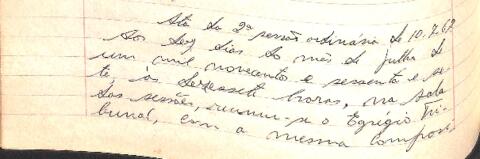 Ata da 2ª sessão ordinária de 10.7.67
Aos dez dias do mês de julho de
um mil novecentos e sessenta e se-
te, às dezessete horas, na sala
das sessões, reuniu-se o Egrégio Tri-
bunal, com a mesma composi-